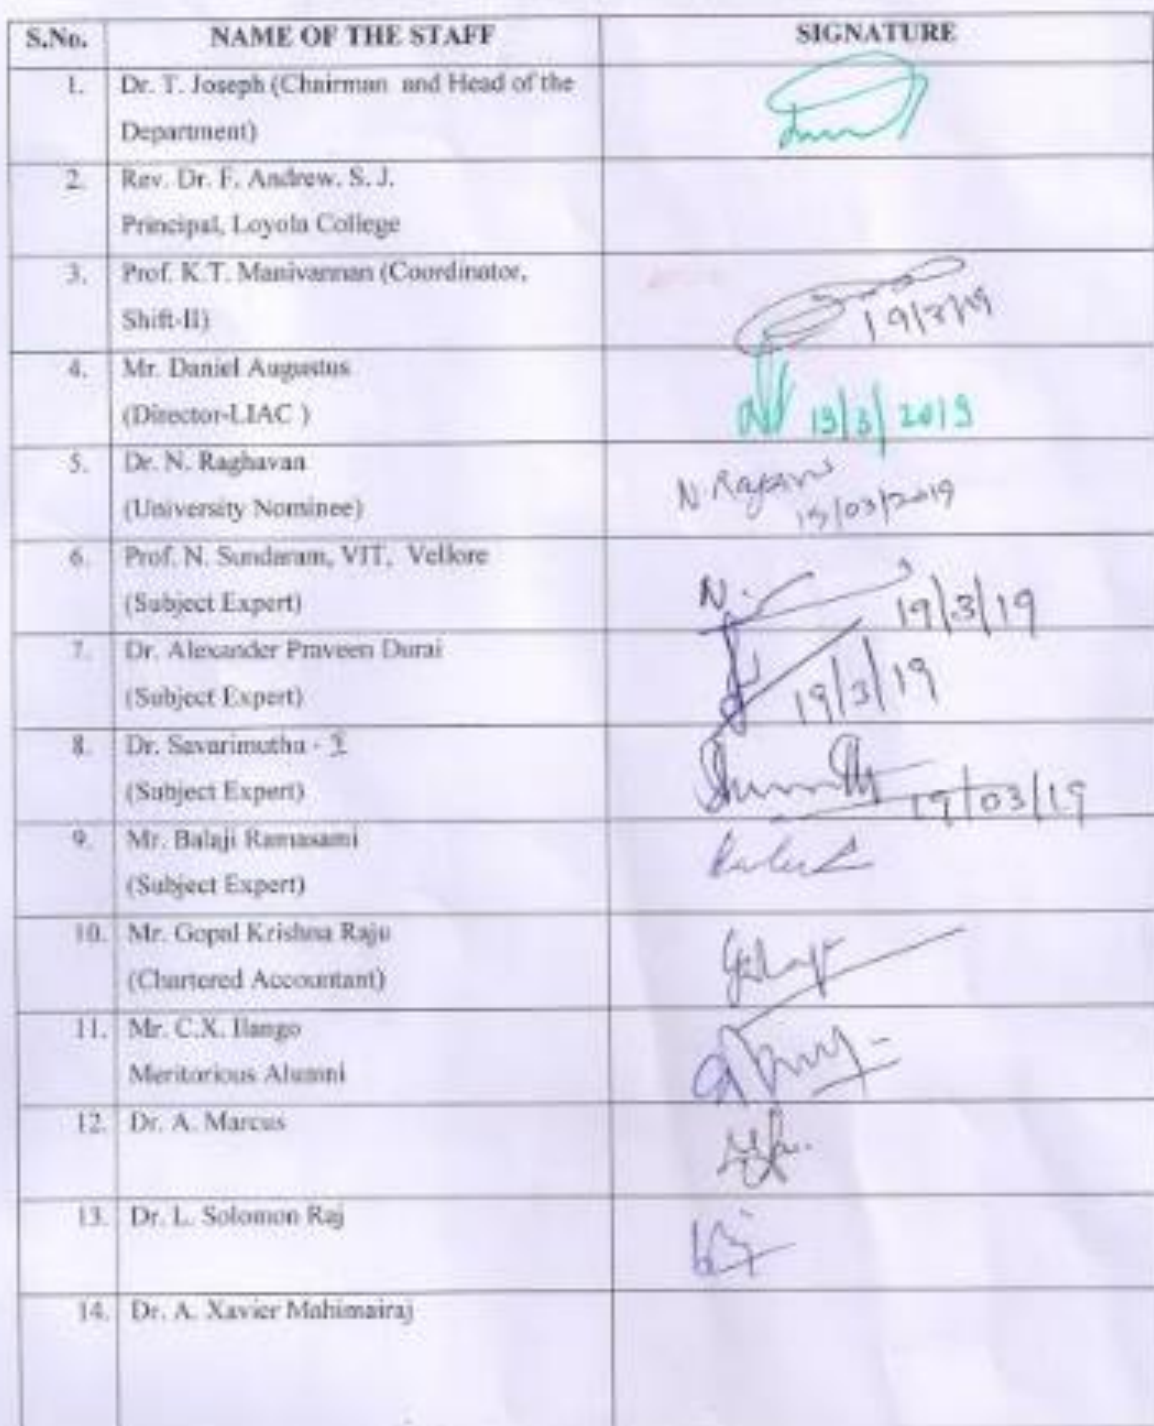 S.No. NAME OF THE STAFF SIGNATURE
1. Dr. T. Joseph (Chairman and Head of the
Department)
2. Rev. Dr. F. Andrew. S. J.
Principal, Loyola College
3. Prof. K.T. Manivannan (Coordinator,
Shift-II) 19/3/19
4. Mr. Daniel Augustus
(Director-LIAC ) 19/3/2019
5. Dr. N. Raghavan
(University Nominee) 19/03/2019
6. Prof. N. Sundaram, VIT, Vellore
(Subject Expert) 19/3/19
7. Dr. Alexander Praveen Durai
(Subject Expert) 19/3/19
8. Dr. Savarimuthu -
(Subject Expert) 19/03/19
9. Mr. Balaji Ramasami
(Subject Expert)
10. Mr. Gopal Krishna Raju
(Chartered Accountant)
11. Mr. C.X. Ilango
Meritorious Alumni
12. Dr. A. Marcus
13. Dr. L. Solomon Raj
14. Dr. A. Xavier Mahimairaj